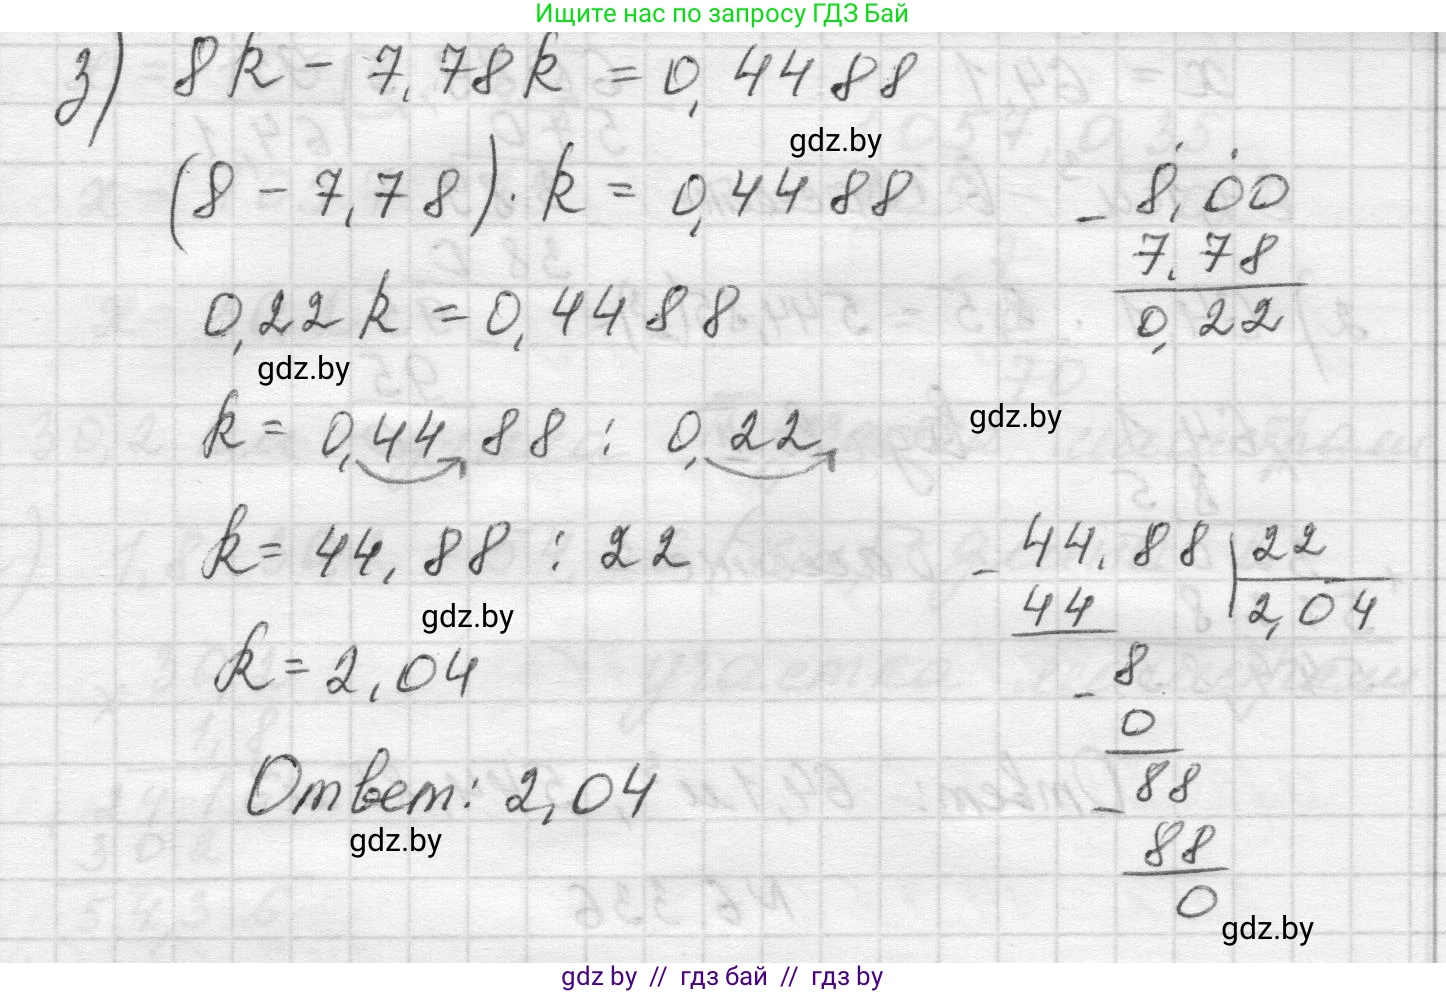 Ищите нас по запросу ГДЗ Бай
3) 8k - 7,78k = 0,4488
gdz.by
(8 - 7,78) · k = 0,4488
- 8,00
7,78
0,22
0,22k = 0,4488
gdz.by
k = 0,4488 : 0,22
gdz.by
k = 44,88 : 22
- 44,88 | 22
44 2,04
gdz.by
k = 2,04
- 8
0
Ответ: 2,04
- 88
gdz.by
88
0
gdz.by
gdz by // гдз бай // гдз by